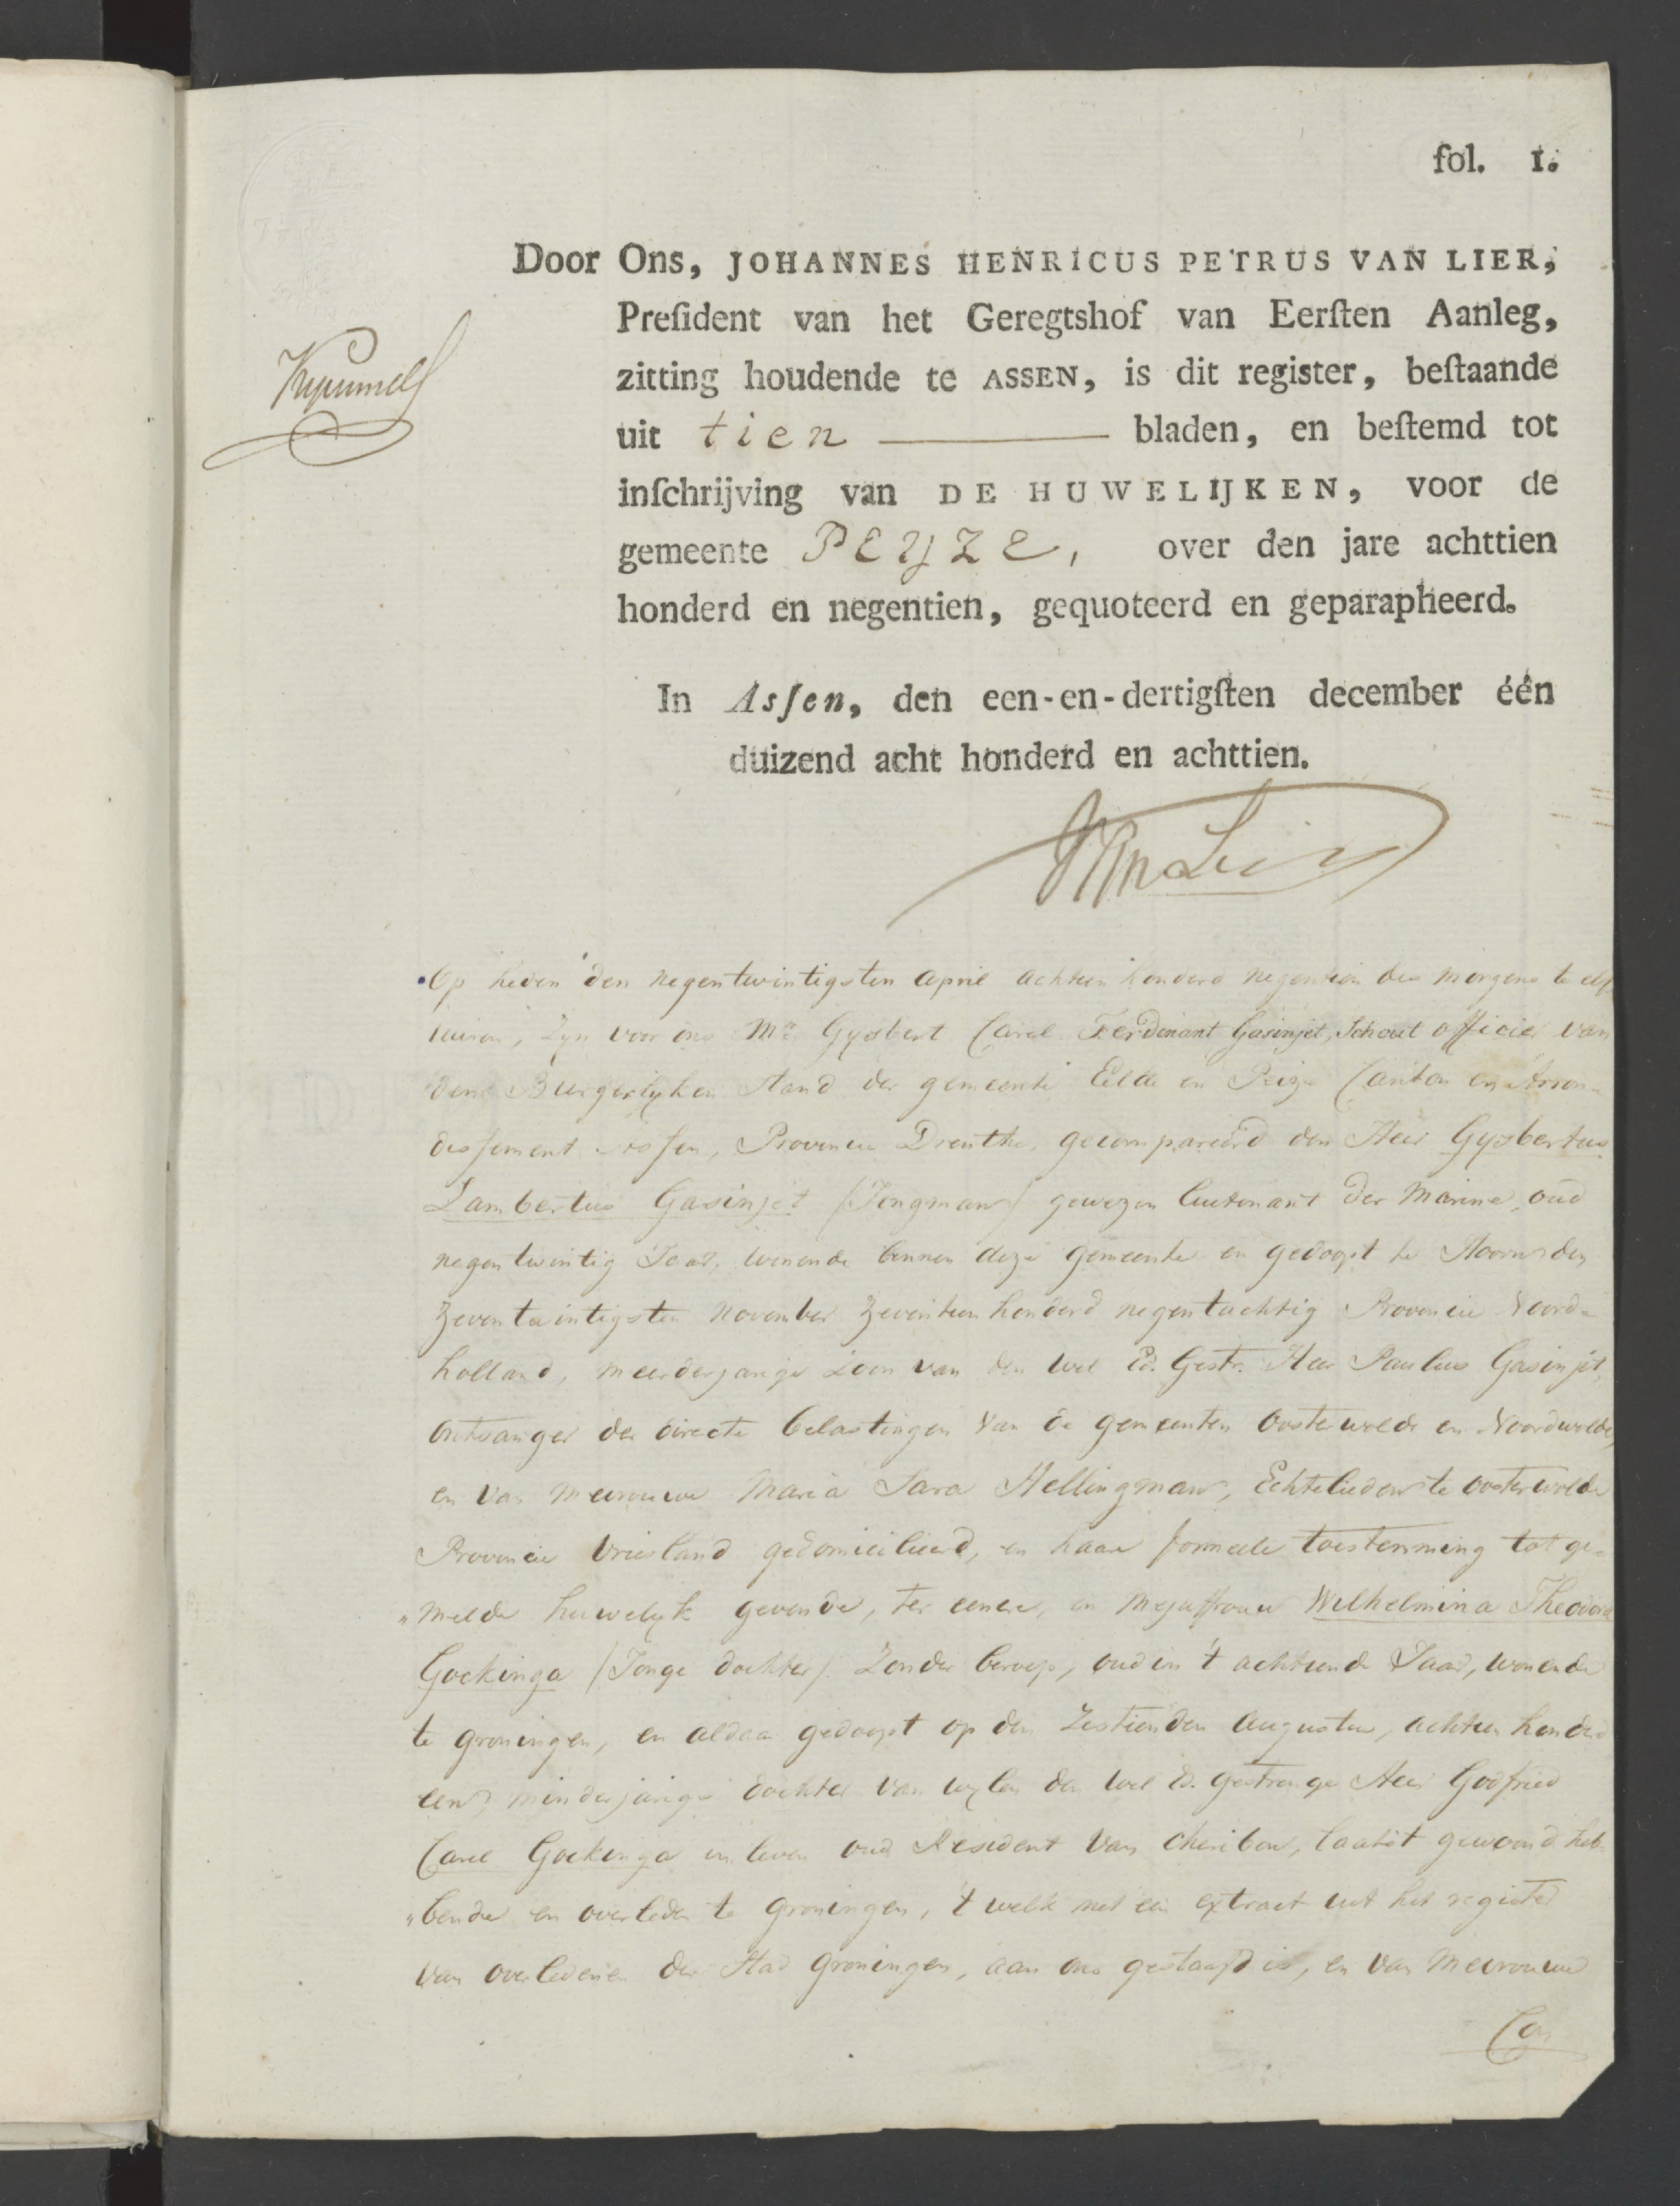 fol. 1.
Door Ons, JOHANNES HENRICUS PETRUS VAN LIER,
Preſident van het Geregtshof van Eerſten Aanleg,
zitting houdende te ASSEN, is dit register, beſtaande
uit tien bladen, en beſtemd tot
inſchrijving van DE HUWELIJKEN, voor de
gemeente PEYZE, over den jare achttien
honderd en negentien, gequoteerd en geparapheerd.
In Asſen, den een-en-dertigſten december één
duizend acht honderd en achttien.
Op heden den negentwintigsten april achtien honderd negentien des morgens te elf
uuren, zyn voor ons Mr. Gysbert Carel Ferdinant Gasinjet, Schout officier van
den Burgerlyken Stand der gemeente Eelde en Peize Canton en Arron-
dissement Assen, Provincie Drenthe, gecompareerd den Heer Gysbertus
Lambertus Gasinjet (Jongman) gewezen luitenant der Marine, oud
negentwintig Jaar, wonende binnen deze gemeente en gedoopt te Hoorn den
zeventwintigsten november zeventien honderd negentachtig Provincie Noord-
holland, meerderjarige zoon van den wel Ed. Gestr. Heer Paulus Gasinjet,
ontvanger der directe belastingen van de gemeenten Oosterwolde en Noordwolde,
en van mevrouwe Maria Sara Hellingman, Echtelieden te oosterwolde
Provincie Vriesland gedomicilieerd, en haare formeele toestemming tot ge-
"melde huwelyk gevende, ter eenere, en mejuffrouw Wilhelmina Theodora
Gockinga (Jonge dochter) zonder beroep, oud in 't achtiende Jaar, wonende
te groningen, en aldaar gedoopt op den zestienden Augustus, achtien honderd
een, minderjarige dochter van wylen den wel Ed. gestrenge Heer Godfried
Carel Gockinga in leven oud Resident van Cheribon, laatst gewoond heb-
"bende en overleden te groningen, 't welk met een extract uit het register
van overledenen der Stad groningen, aan ons gestaafd is, en van Mevrouwe